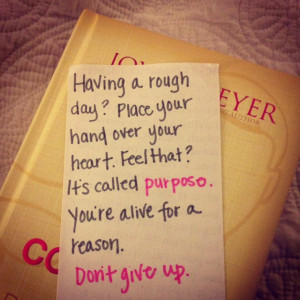 JO
EYER
AUTHOR
Having a rough
day? Place your
hand over your
heart. Feel that?
It's called purpose.
You're alive for a
reason.
Don't give up.
CO